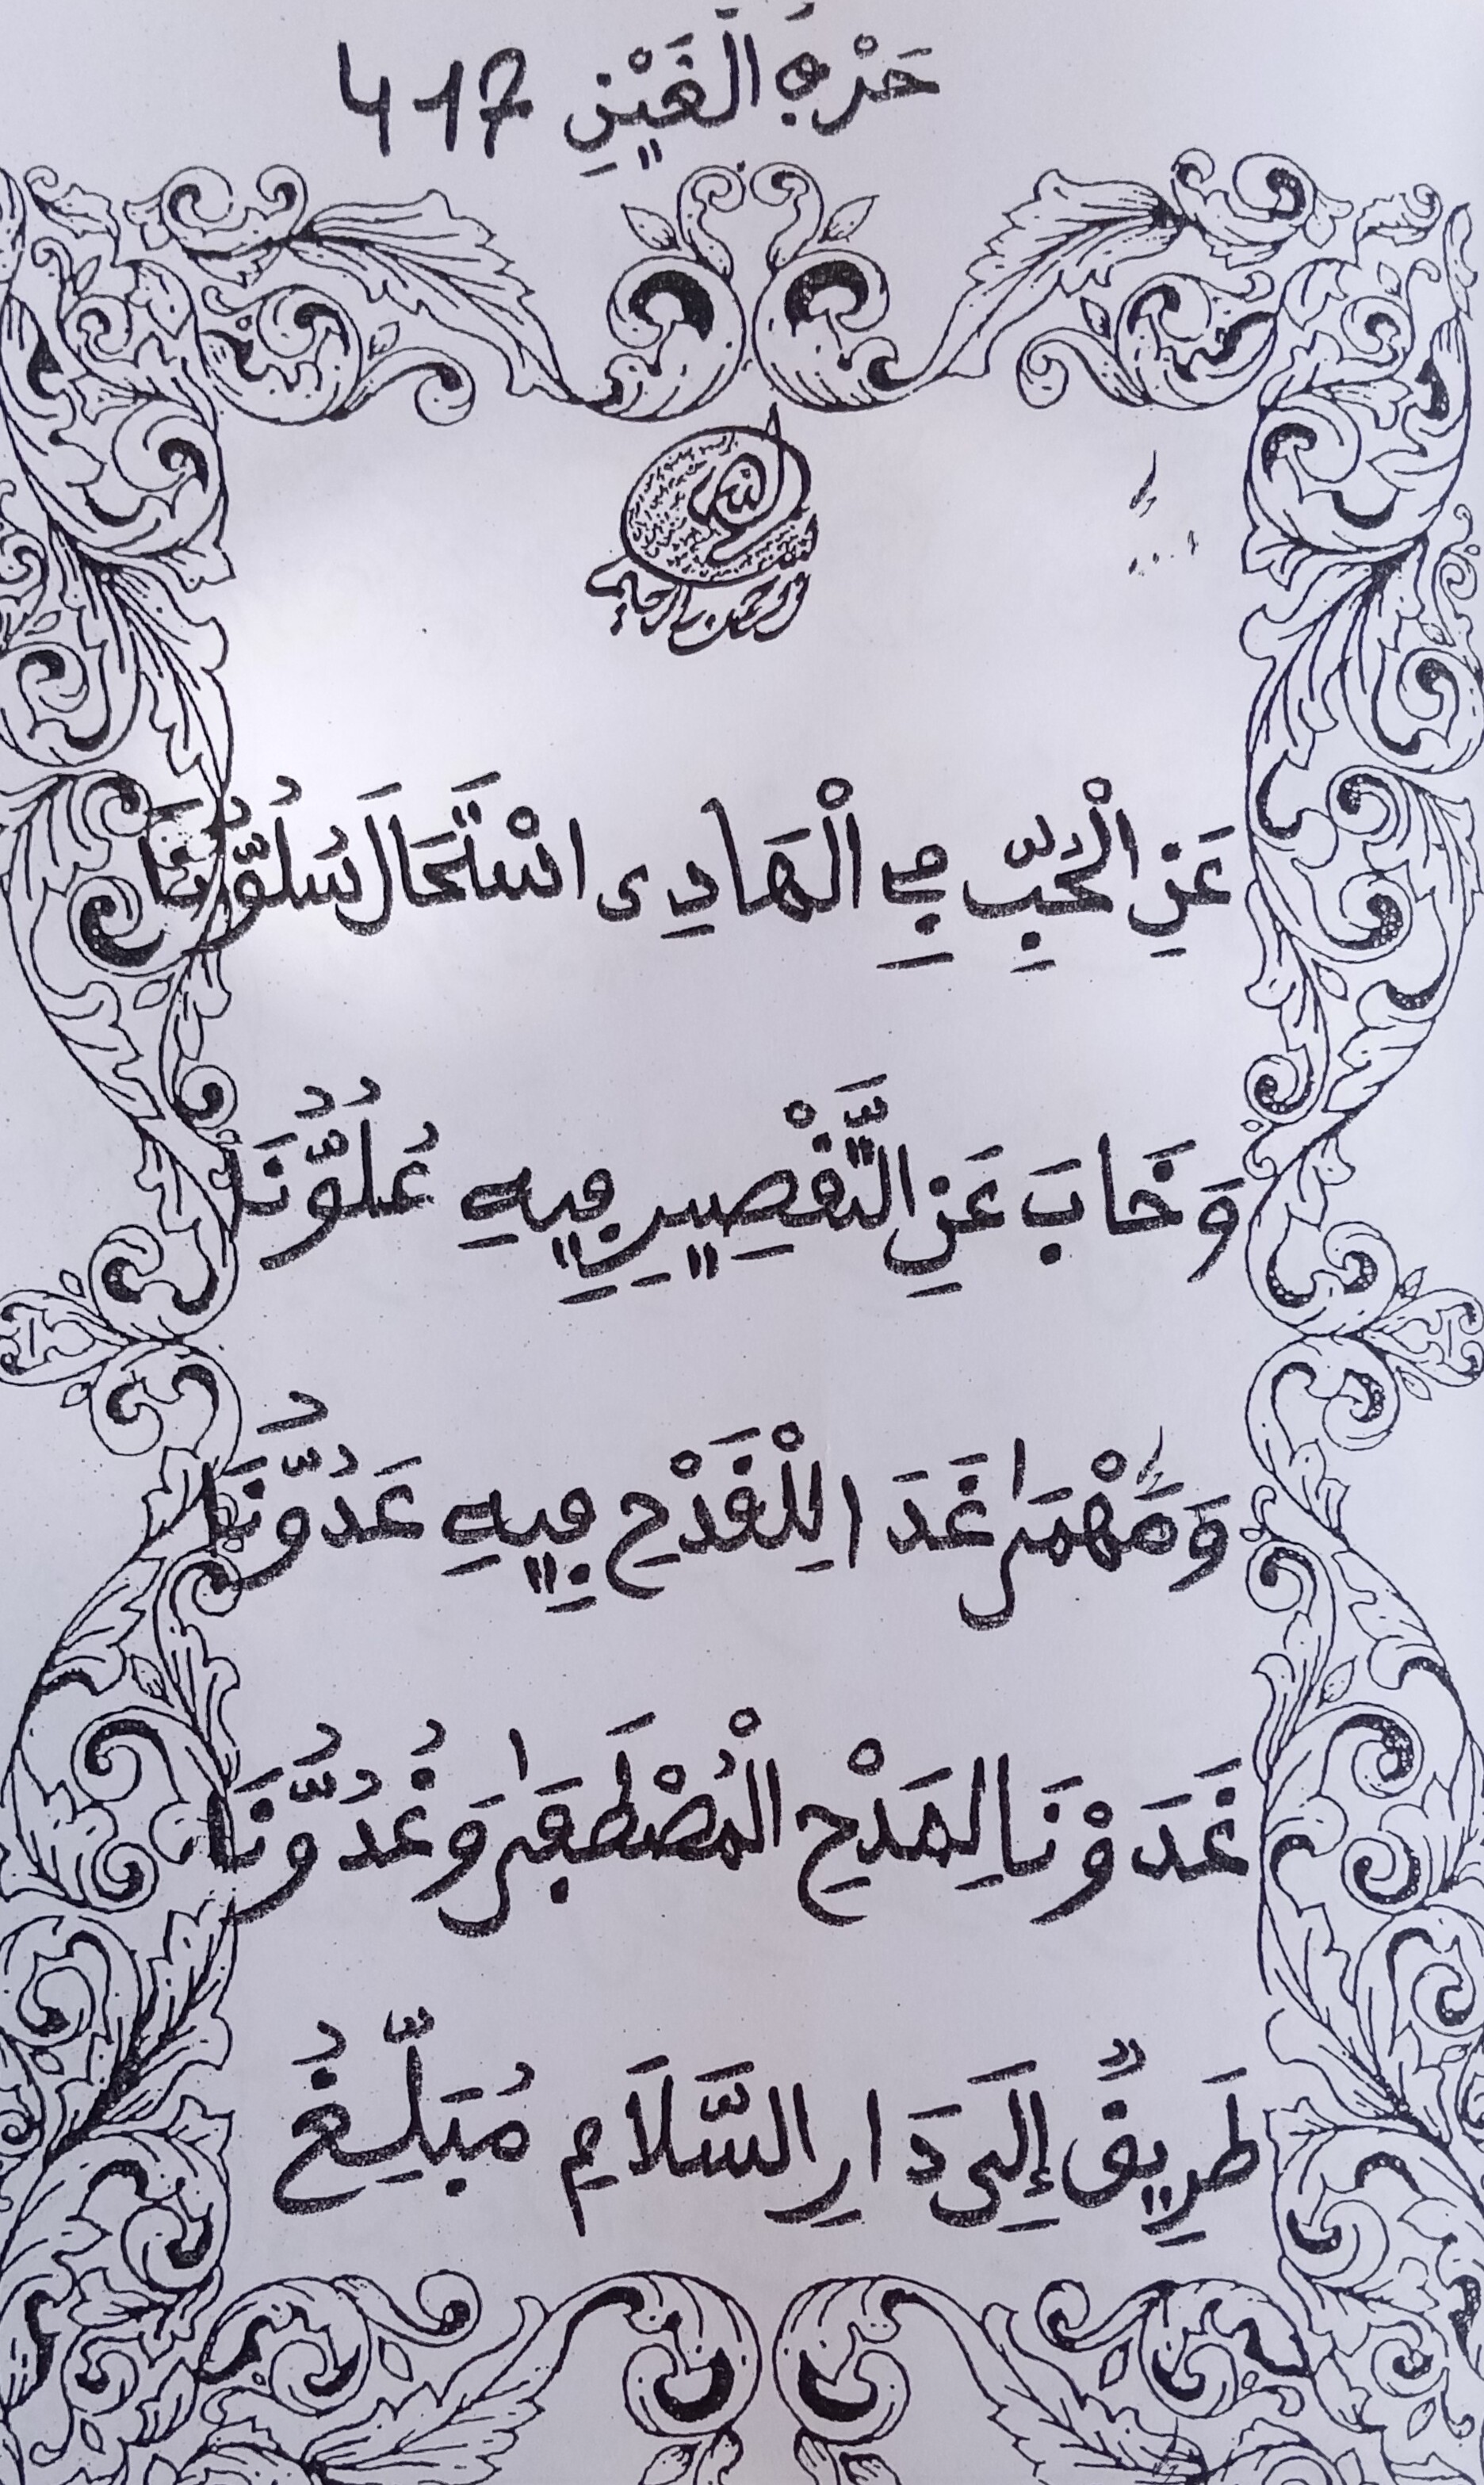 حَرْفُ الْغَيْنِ 417
بسم الله الرحمن الرحيم
عَنِ الْحُبِّ فِي الْهَادِى اسْتَحَالَ سُلُوُّنَا
وَخَابَ عَنِ التَّقْصِيرِ فِيهِ عُلُوُّنَا
وَمَهْمَى غَدَا لِلْقَدْحِ فِيهِ عَدُوُّنَا
غَدَوْنَا لِمَدْحِ الْمُصْطَفَى وَغُدُوُّنَا
طَرِيقٌ إِلَى دَارِ السَّلَامِ مُبَلِّغُ